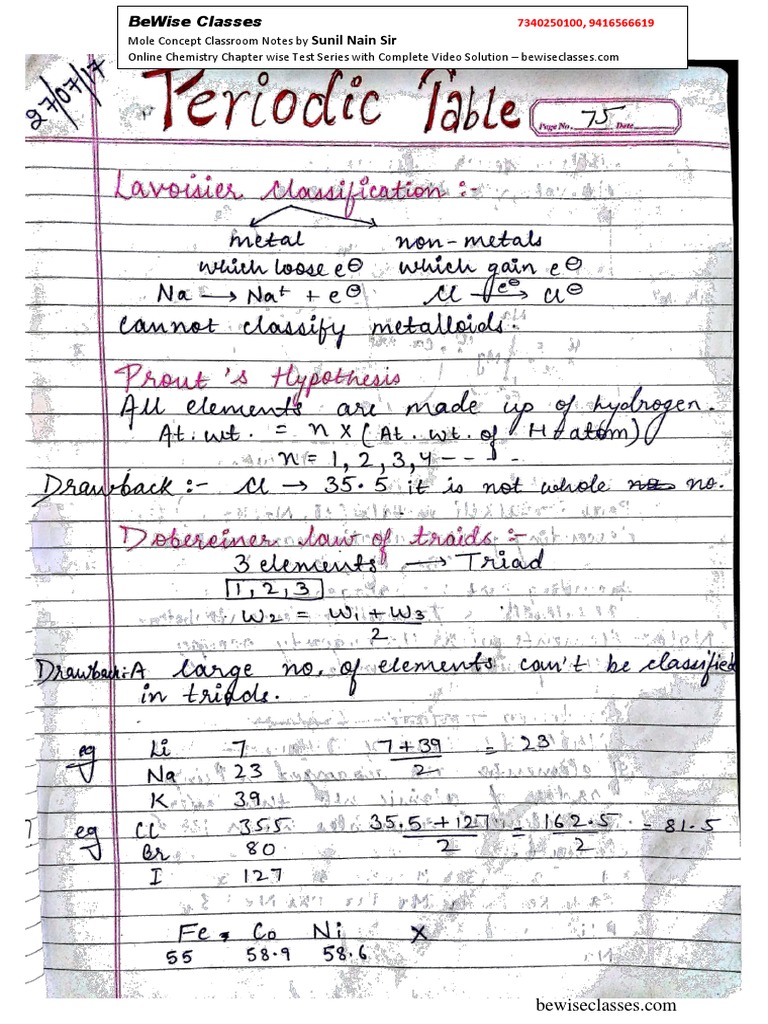 BeWise Classes 7340250100, 9416566619
Mole Concept Classroom Notes by Sunil Nain Sir
Online Chemistry Chapter wise Test Series with Complete Video Solution – bewiseclasses.com
27/07/17
Periodic Table
Page No. 75 Date
Lavoisier Classification :-
metal non-metals
which loose e⊖ which gain e⊖
Na → Na⁺ + e⊖ Cl —e⊖→ Cl⊖
cannot classify metalloids.
Prout's Hypothesis
All elements are made up of hydrogen.
At. wt. = n × (At. wt. of H atom)
n = 1, 2, 3, 4 - - - .
Drawback :- Cl → 35.5 it is not whole no.
Dobereiner law of traids :-
3 elements → Triad
1, 2, 3
W2 = W1 + W3
2
Drawback: A large no. of elements can't be classified
in triads.
eg Li 7 7 + 39 = 23
2
Na 23
K 39
eg Cl 35.5 35.5 + 127 = 162.5 = 81.5
2 2
Br 80
I 127
Fe, Co Ni X
55 58.9 58.6
bewiseclasses.com